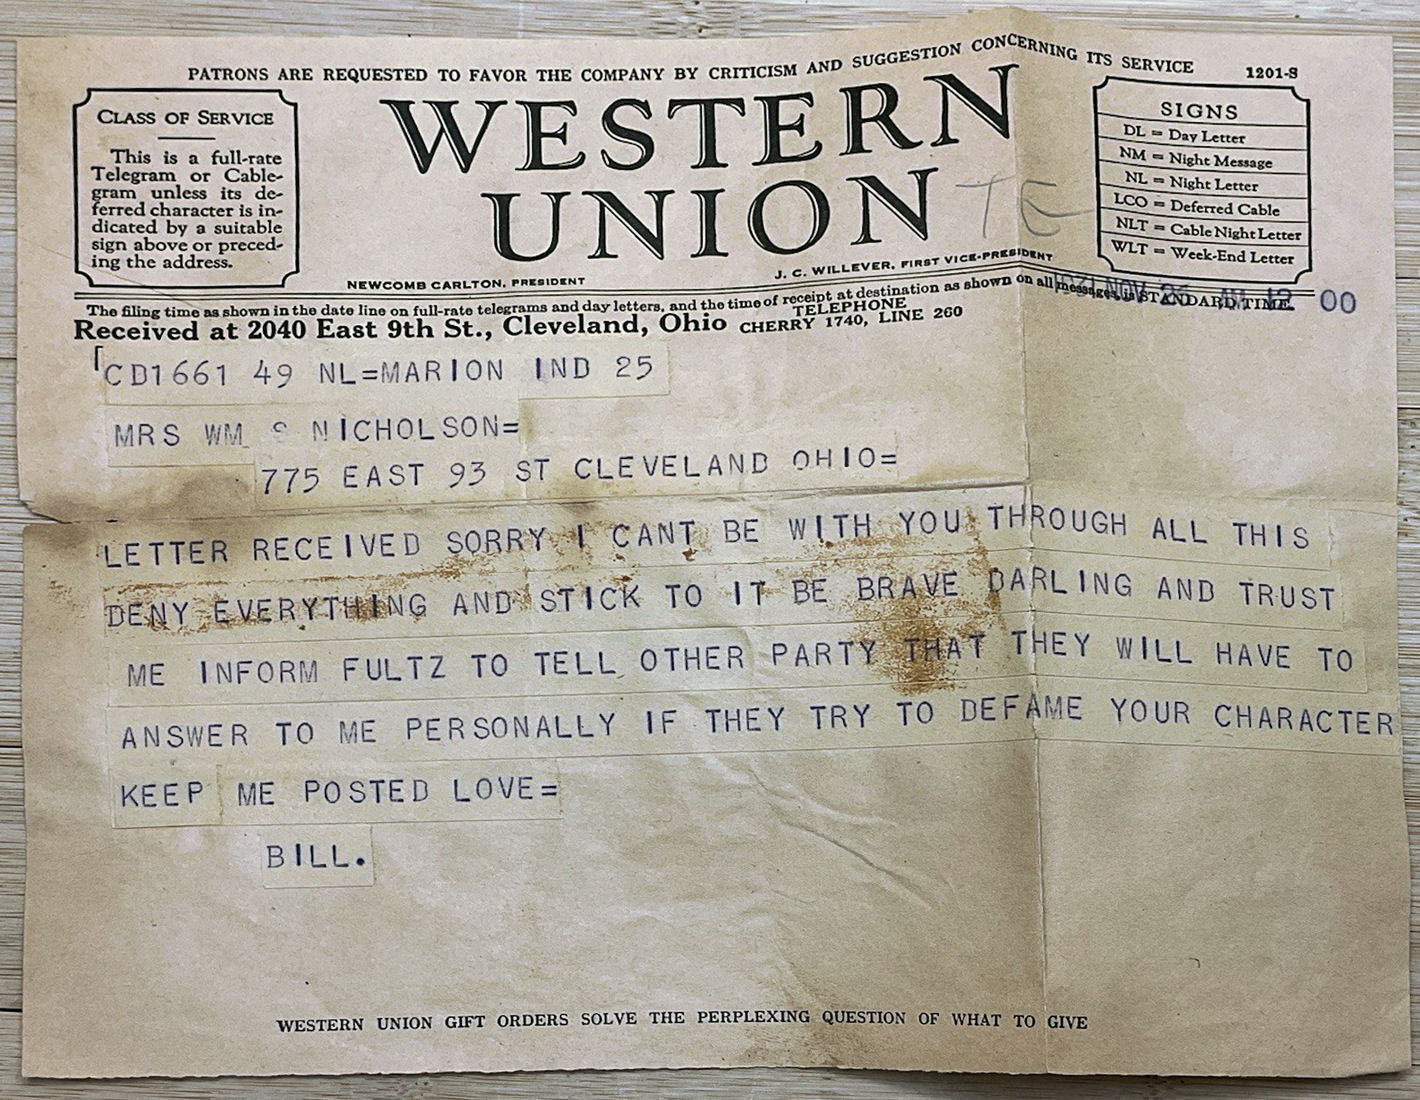 PATRONS ARE REQUESTED TO FAVOR THE COMPANY BY CRITICISM AND SUGGESTION CONCERNING ITS SERVICE
1201-S
CLASS OF SERVICE
This is a full-rate
Telegram or Cable-
gram unless its de-
ferred character is in-
dicated by a suitable
sign above or preced-
ing the address.
WESTERN
UNION
TE
NEWCOMB CARLTON, PRESIDENT
J. C. WILLEVER, FIRST VICE-PRESIDENT
SIGNS
DL = Day Letter
NM = Night Message
NL = Night Letter
LCO = Deferred Cable
NLT = Cable Night Letter
WLT = Week-End Letter
The filing time as shown in the date line on full-rate telegrams and day letters, and the time of receipt at destination as shown on all messages, is STANDARD TIME.
NOV 26 AM 12 00
Received at 2040 East 9th St., Cleveland, Ohio
TELEPHONE
CHERRY 1740, LINE 260
CD1661 49 NL=MARION IND 25
MRS WM S NICHOLSON=
775 EAST 93 ST CLEVELAND OHIO=
LETTER RECEIVED SORRY I CANT BE WITH YOU THROUGH ALL THIS
DENY EVERYTHING AND STICK TO IT BE BRAVE DARLING AND TRUST
ME INFORM FULTZ TO TELL OTHER PARTY THAT THEY WILL HAVE TO
ANSWER TO ME PERSONALLY IF THEY TRY TO DEFAME YOUR CHARACTER
KEEP ME POSTED LOVE=
BILL.
WESTERN UNION GIFT ORDERS SOLVE THE PERPLEXING QUESTION OF WHAT TO GIVE